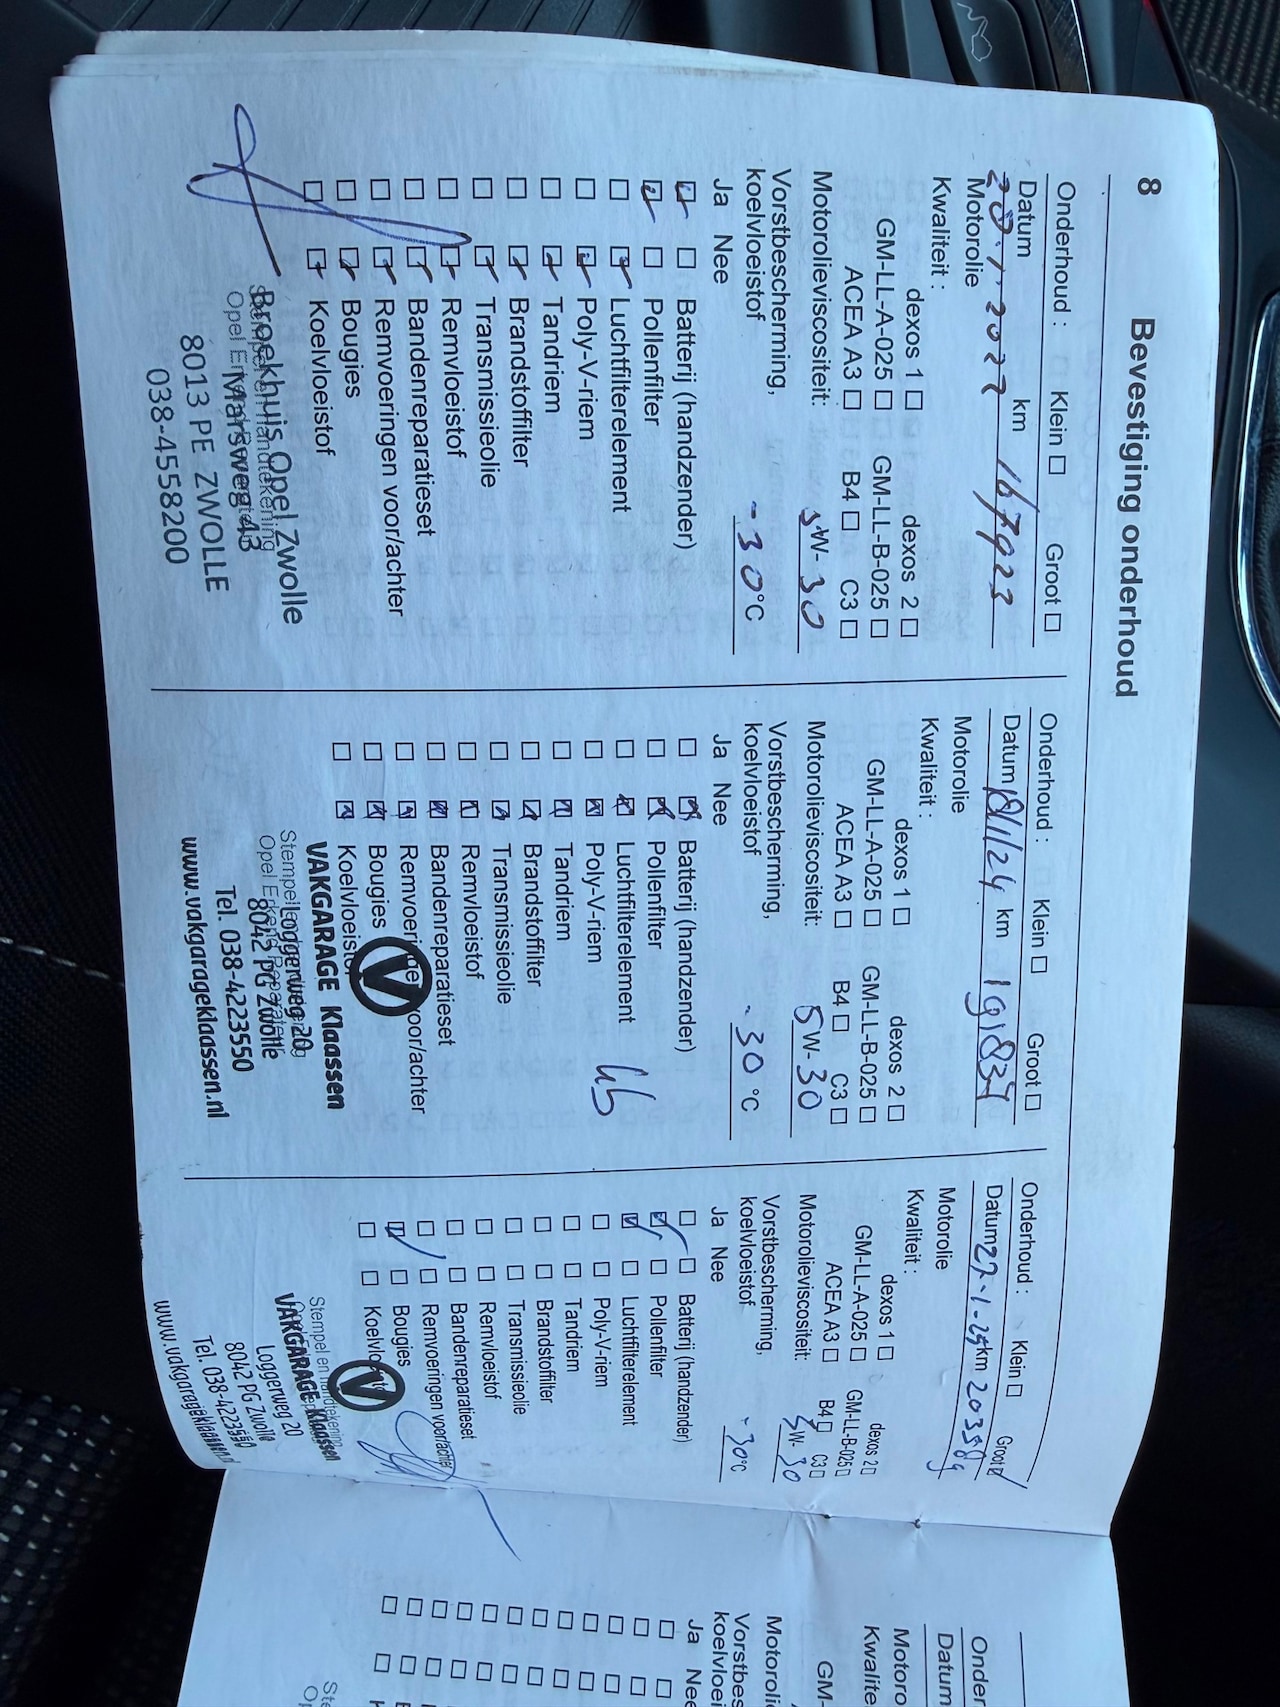 8 Bevestiging onderhoud
Onderhoud : Klein ☐ Groot ☐
Datum km 167923
20.1.2022
Motorolie
Kwaliteit :
dexos 1 ☐ dexos 2 ☐
GM-LL-A-025 ☐ GM-LL-B-025 ☐
ACEA A3 ☐ B4 ☐ C3 ☐
Motorolieviscositeit: 5W-30
Vorstbescherming,
koelvloeistof -30°C
Ja Nee
☑ ☐ Batterij (handzender)
☑ ☐ Pollenfilter
☐ ☑ Luchtfilterelement
☐ ☑ Poly-V-riem
☐ ☑ Tandriem
☐ ☑ Brandstoffilter
☐ ☑ Transmissieolie
☐ ☑ Remvloeistof
☐ ☑ Bandenreparatieset
☐ ☑ Remvoeringen voor/achter
☐ ☑ Bougies
☐ ☑ Koelvloeistof
Broekhuis Opel Zwolle
Marsweg 43
8013 PE ZWOLLE
038-4558200
Onderhoud : Klein ☐ Groot ☐
Datum km 191837
Motorolie
Kwaliteit :
dexos 1 ☐ dexos 2 ☐
GM-LL-A-025 ☐ GM-LL-B-025 ☐
ACEA A3 ☐ B4 ☐ C3 ☐
Motorolieviscositeit: 5W-30
Vorstbescherming,
koelvloeistof -30 °C
Ja Nee
☐ ☒ Batterij (handzender)
☐ ☒ Pollenfilter
☐ ☒ Luchtfilterelement
☐ ☒ Poly-V-riem
☐ ☒ Tandriem
☐ ☒ Brandstoffilter
☐ ☒ Transmissieolie
☐ ☒ Remvloeistof
☐ ☒ Bandenreparatieset
☐ ☒ Remvoeringen voor/achter
☐ ☒ Bougies
☐ ☒ Koelvloeistof
VAKGARAGE Klaassen
Loggerweg 20
8042 PG Zwolle
Tel. 038-4223550
www.vakgarageklaassen.nl
Onderhoud : Klein ☐ Groot ☑
Datum 27-1-25 km 203589
Motorolie
Kwaliteit :
dexos 1 ☐ dexos 2 ☐
GM-LL-A-025 ☐ GM-LL-B-025 ☐
ACEA A3 ☐ B4 ☐ C3 ☐
Motorolieviscositeit: 5W-30
Vorstbescherming,
koelvloeistof -30°C
Ja Nee
☐ ☐ Batterij (handzender)
☑ ☐ Pollenfilter
☑ ☐ Luchtfilterelement
☐ ☐ Poly-V-riem
☐ ☐ Tandriem
☐ ☐ Brandstoffilter
☐ ☐ Transmissieolie
☐ ☐ Remvloeistof
☐ ☐ Bandenreparatieset
☐ ☐ Remvoeringen voor/achter
☑ ☐ Bougies
☐ ☐ Koelvloeistof
Stempel en handtekening
VAKGARAGE Klaassen
Loggerweg 20
8042 PG Zwolle
Tel. 038-4223550
www.vakgarageklaassen.nl
Onder
Datum
Motoro
Kwalite
GM-
Motoroli
Vorstbes
koelvloei
Ja Nee